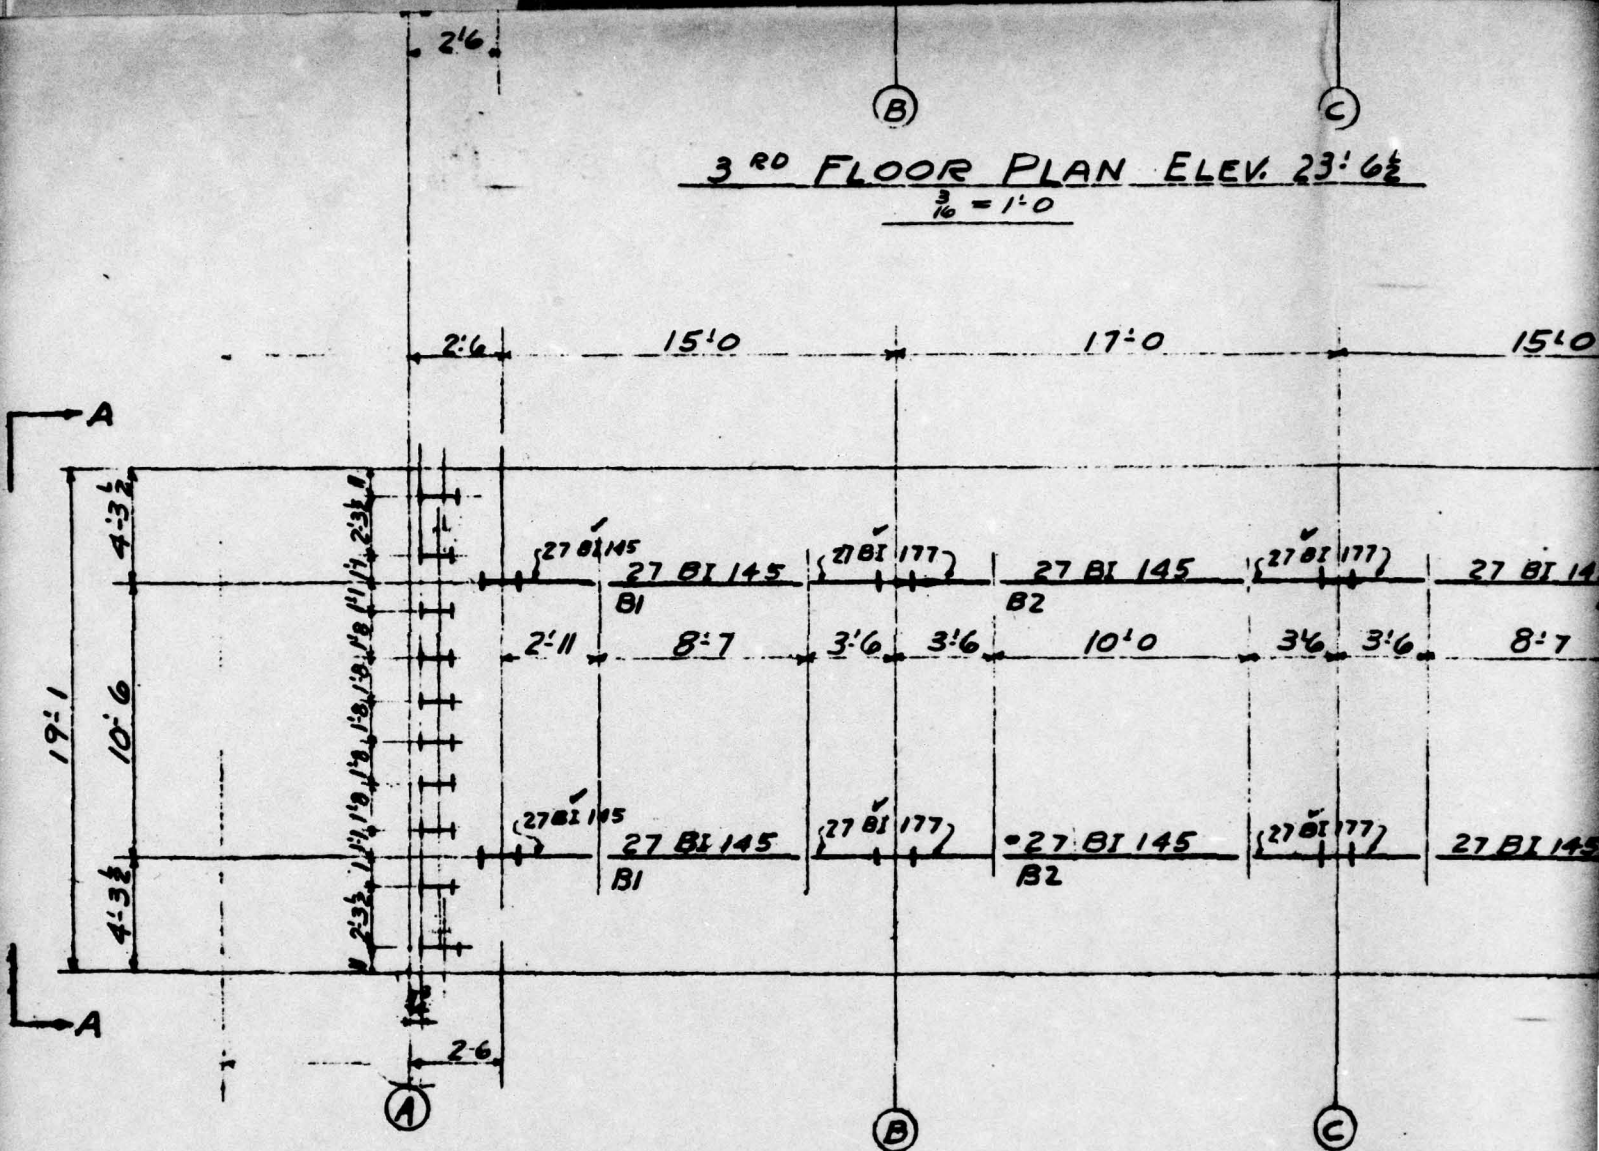 2'6
B
C
3RD FLOOR PLAN ELEV. 23'-6½
3/16 = 1'-0
2'-6
15'-0
17'-0
15'-0
A
4'-3½
10'-6
4'-3½
19'-1
11
2'-3½
1'-1
1'-1
1'-8
1'-8
1'-8
1'-8
1'-8
1'-1
1'-1
2'-3½
11
27 BI 145
27 BI 145
B1
27 BI 177
27 BI 145
B2
27 BI 177
27 BI 14
2'-11
8'-7
3'-6
3'-6
10'-0
3'6
3'-6
8'-7
27 BI 145
27 BI 145
B1
27 BI 177
27 BI 145
B2
27 BI 177
27 BI 145
A
2-6
A
B
C